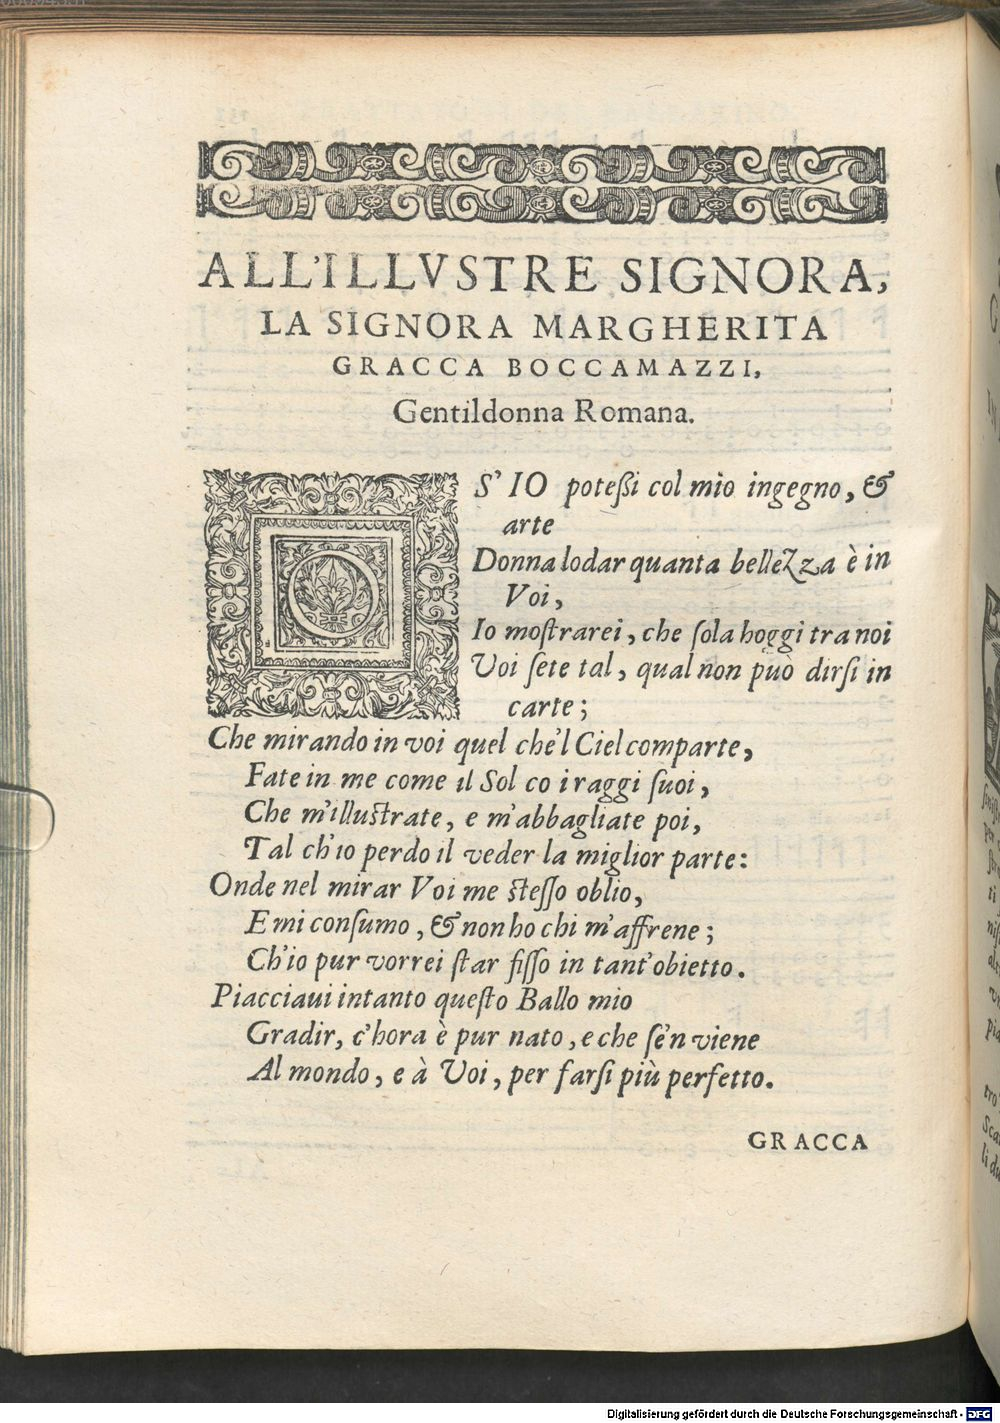 ALL'ILLVSTRE SIGNORA,
LA SIGNORA MARGHERITA
GRACCA BOCCAMAZZI,
Gentildonna Romana.
S' IO poteſſi col mio ingegno, &
arte
Donna lodar quanta bellezza è in
Voi,
Io moſtrarei, che ſola hoggi tra noi
Voi ſete tal, qual non può dirſi in
carte;
Che mirando in voi quel che'l Ciel comparte,
Fate in me come il Sol co i raggi ſuoi,
Che m'illuſtrate, e m'abbagliate poi,
Tal ch'io perdo il veder la miglior parte:
Onde nel mirar Voi me ſteſſo oblio,
E mi conſumo, & non ho chi m'affrene;
Ch'io pur vorrei ſtar fiſſo in tant'obietto.
Piacciaui intanto queſto Ballo mio
Gradir, c'hora è pur nato, e che ſe'n viene
Al mondo, e à Voi, per farſi più perfetto.
GRACCA
Digitalisierung gefördert durch die Deutsche Forschungsgemeinschaft - DFG